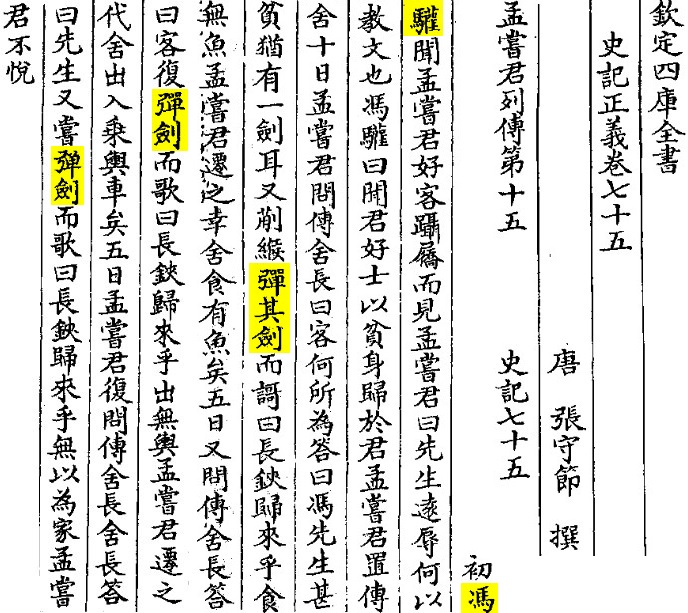 欽定四庫全書
史記正義卷七十五
唐 張守節 撰
孟嘗君列傳第十五 史記七十五
初馮
驩聞孟嘗君好客躡屩而見孟嘗君曰先生遠辱何以
教文也馮驩曰聞君好士以貧身歸於君孟嘗君置傳
舍十日孟嘗君問傳舍長曰客何所為答曰馮先生甚
貧猶有一劍耳又蒯緱彈其劍而謌曰長鋏歸來乎食
無魚孟嘗君遷之幸舍食有魚矣五日又問傳舍長答
曰客復彈劍而歌曰長鋏歸來乎出無輿孟嘗君遷之
代舍出入乘輿車矣五日孟嘗君復問傳舍長舍長答
曰先生又嘗彈劍而歌曰長鋏歸來乎無以為家孟嘗
君不悅